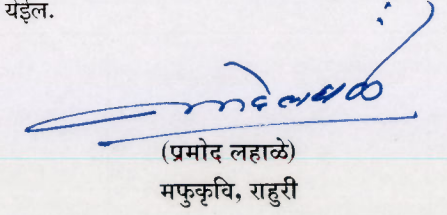 येईल.
(प्रमोद लहाळे)
मफुकृवि, राहुरी